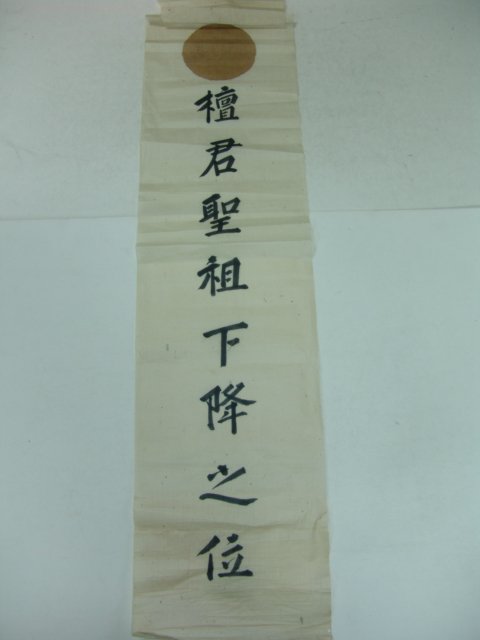 檀君聖祖下降之位